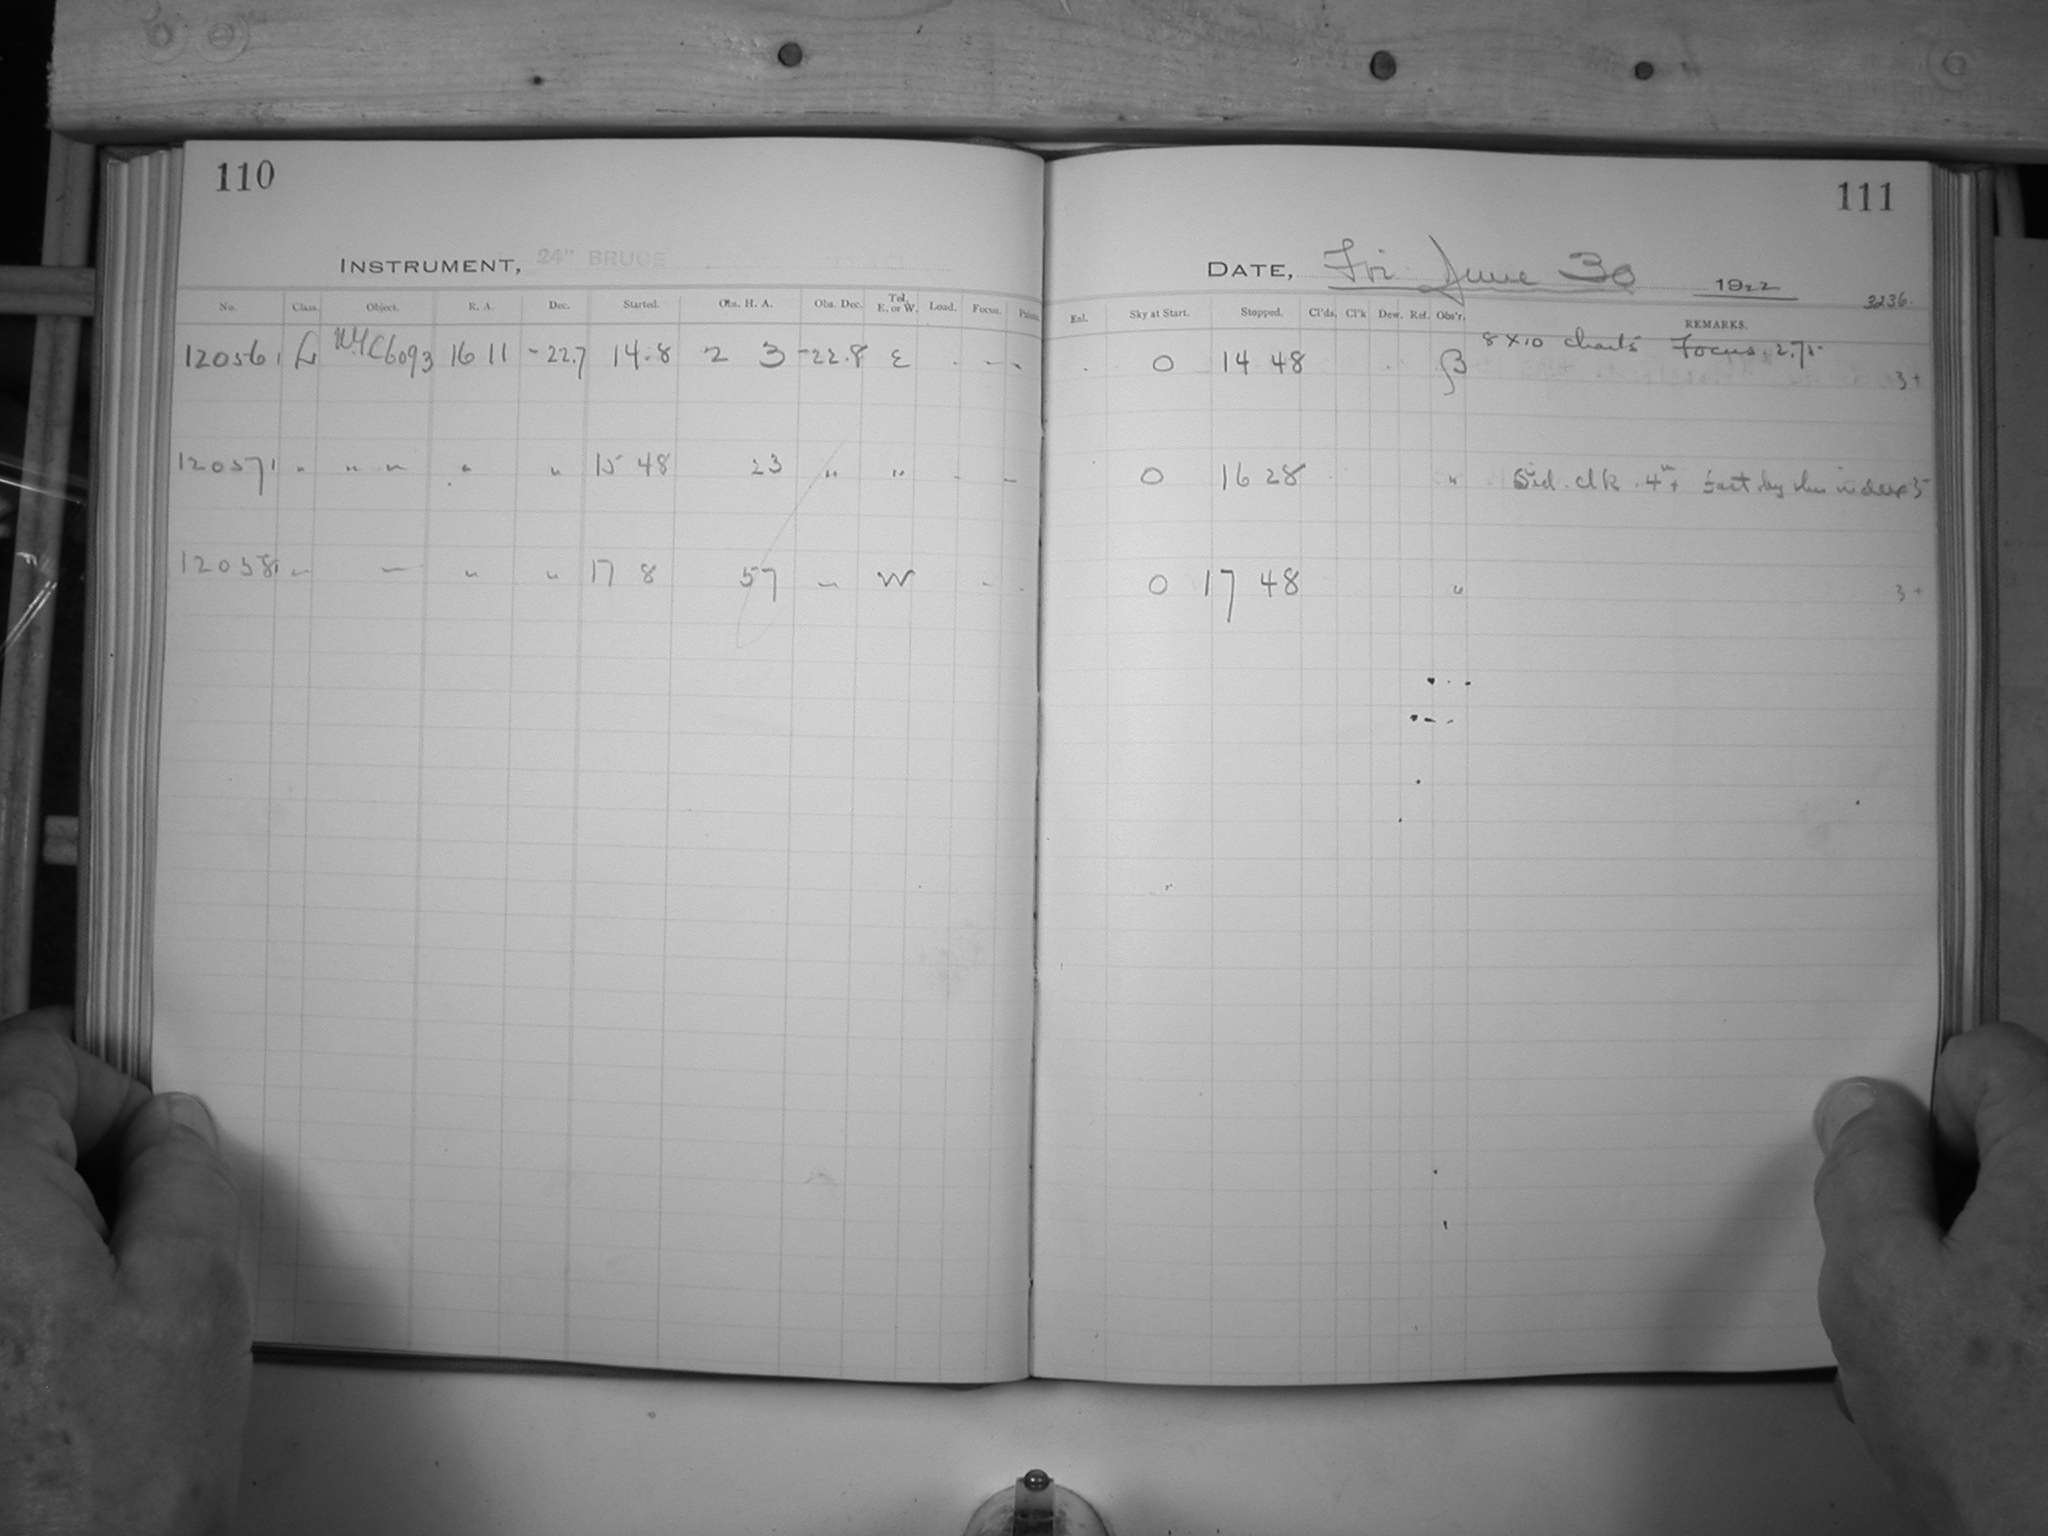 110
INSTRUMENT, 24" BRUCE
No. Class. Object. R. A. Dec. Started. Obs. H. A. Obs. Dec. Tel. E. or W. Load. Focus. Prism.
12056 L NGC6093 16 11 -22.7 14.8 2 3 -22.8 E - -
12057 " " " " " 15 48 23 " " - -
12058 " " " " 17 8 57 " W -
111
DATE, Fri June 30 1922
3236.
Exl. Sky at Start. Stopped. Cl'ds. Cl'k Dew. Ref. Obs'r. REMARKS.
0 14 48 β 8 x 10 charts Focus 2.75 3+
0 16 28 " Sid. clk. 4m+ fast by this index 3-
0 17 48 " 3+